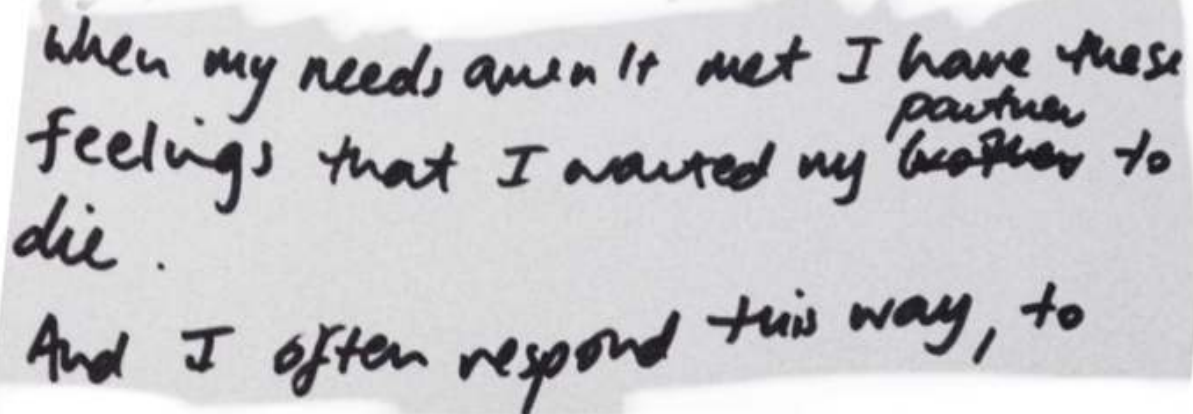 when my needs aren't met I have these
partner
feelings that I wanted my brother to
die.
And I often respond this way, to